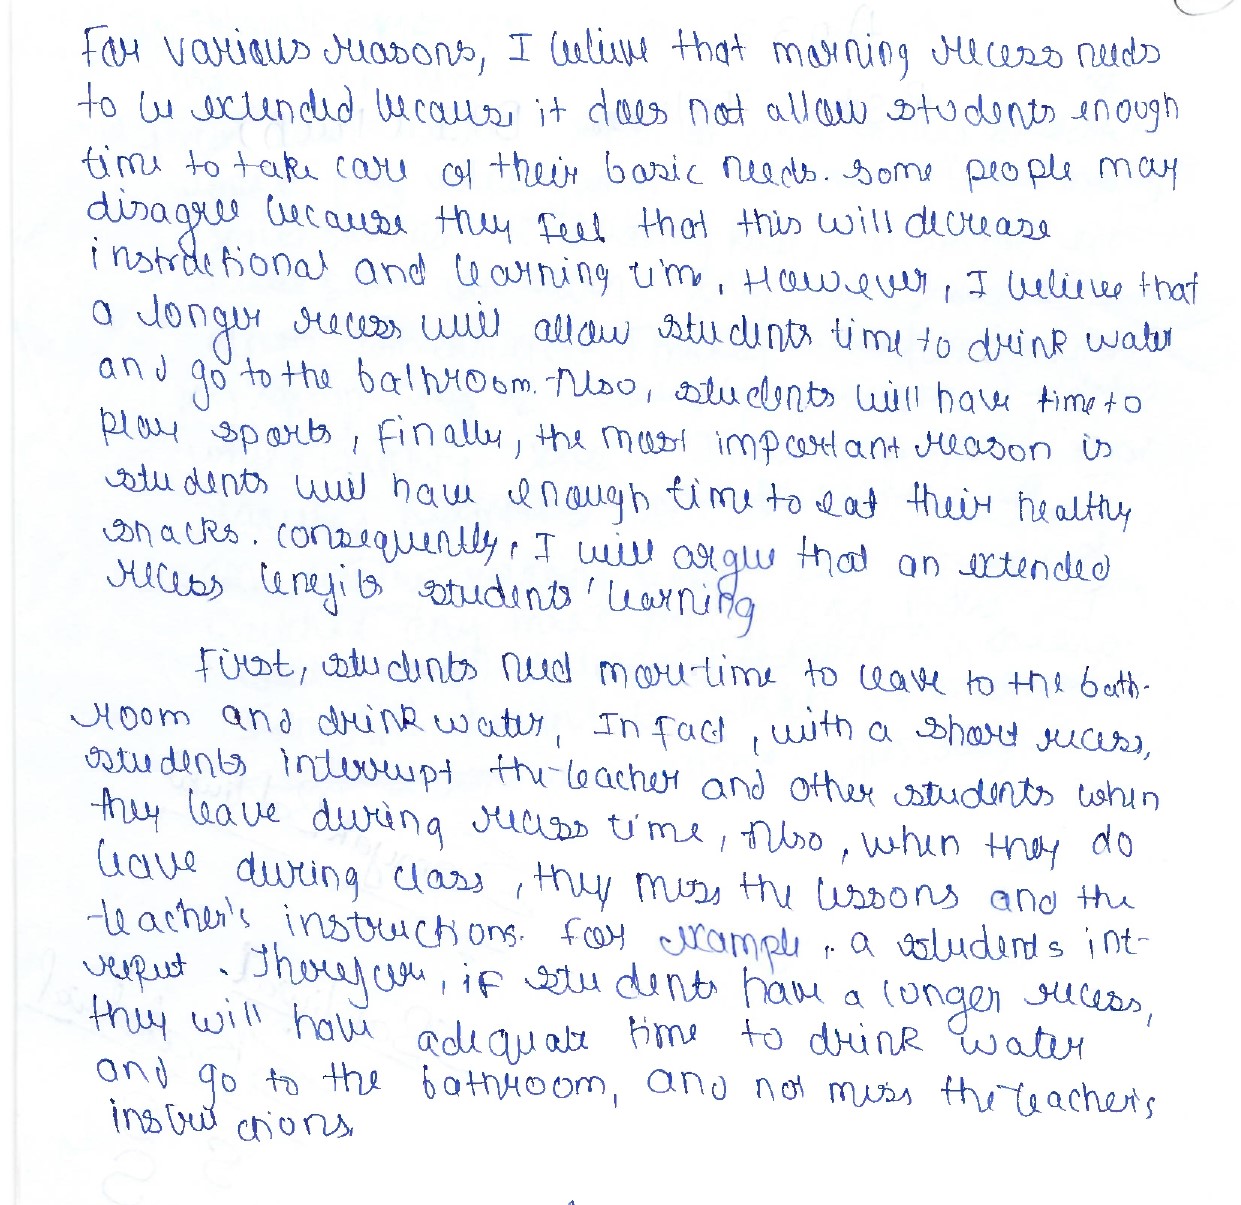 For various reasons, I believe that morning recess needs
to be extended because it does not allow students enough
time to take care of their basic needs. some people may
disagree because they feel that this will decrease
instructional and learning time, However, I believe that
a longer recess will allow students time to drink water
and go to the bathroom. Also, students will have time to
play sports, Finally, the most important reason is
students will have enough time to eat their healthy
snacks. consequently, I will argue that an extended
recess benefits students' learning
First, students need more time to leave to the bath-
room and drink water, In fact, with a short recess,
students interrupt the teacher and other students when
they leave during recess time, Also, when they do
leave during class, they miss the lessons and the
teacher's instructions. For example, a students int-
rerput. Therefore, if students have a longer recess,
they will have adequate time to drink water
and go to the bathroom, and not miss the teacher's
instructions